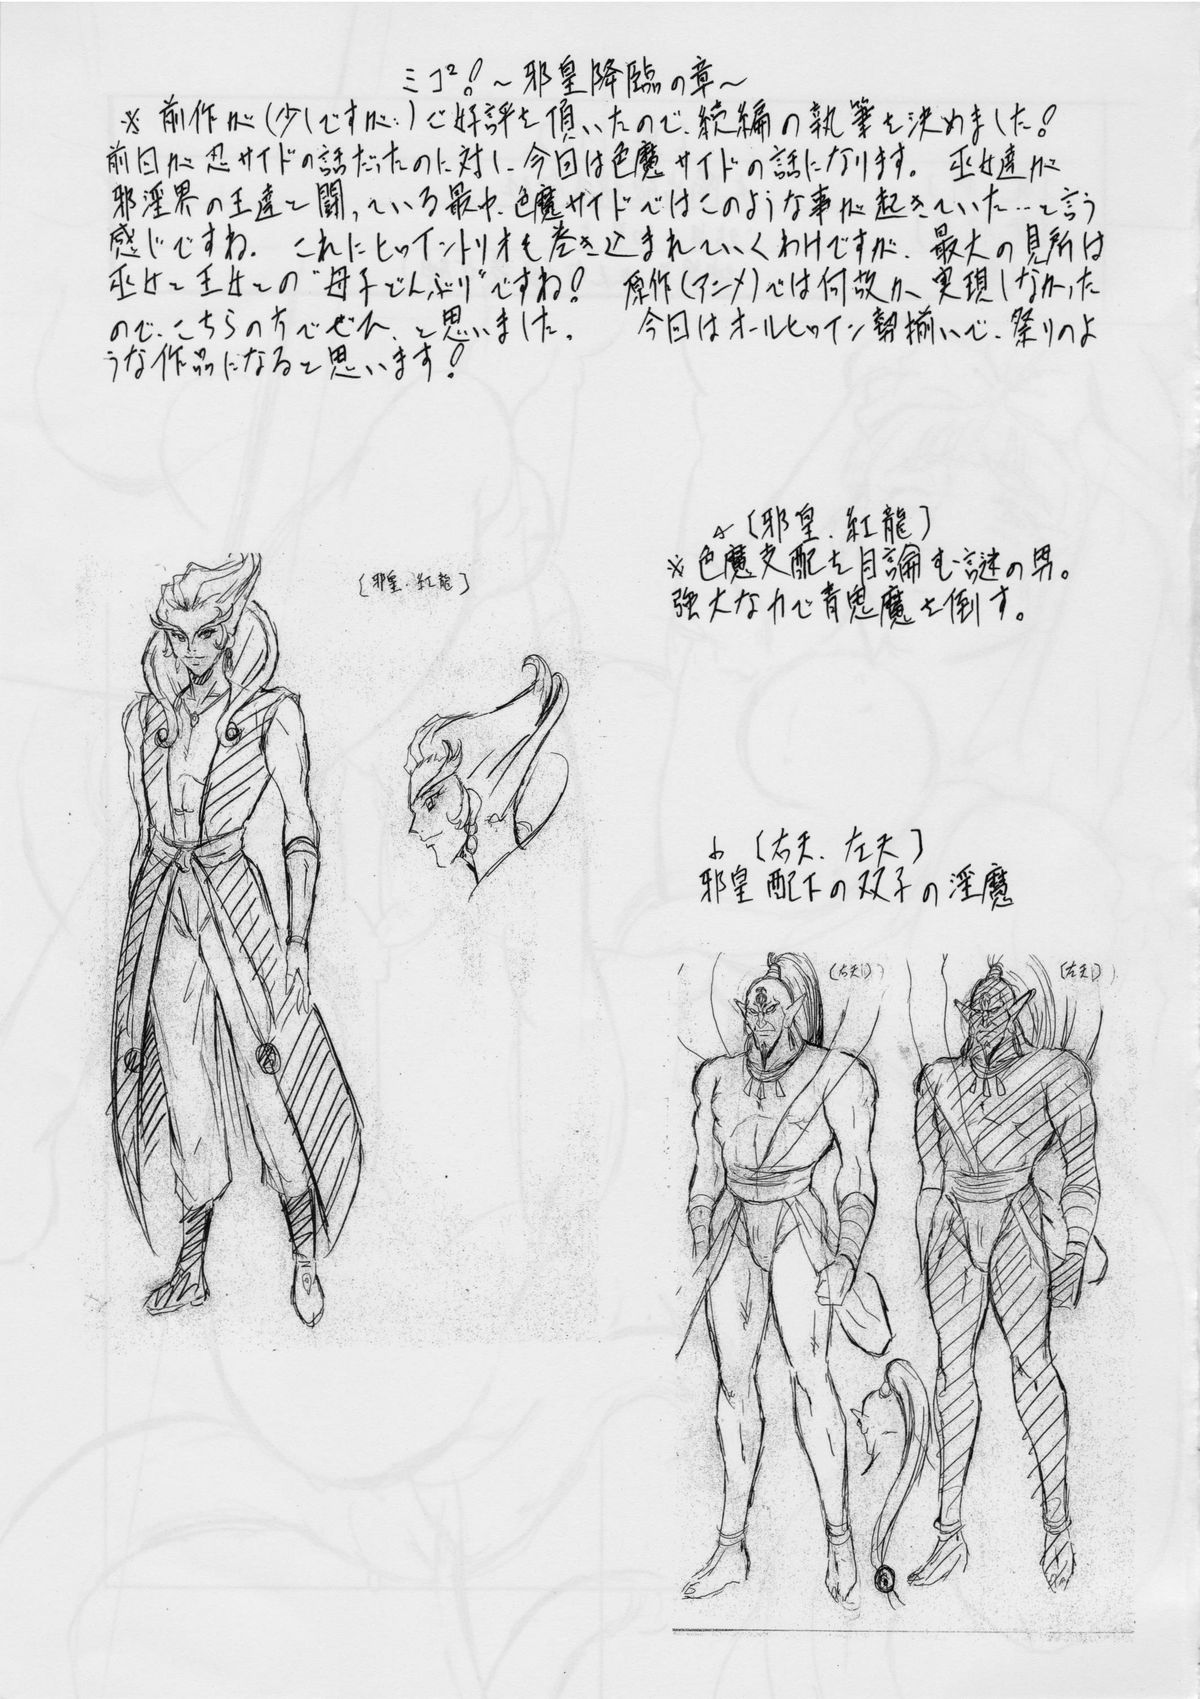 ミコ²!～邪皇降臨の章～
※ 前作が(少しですが…)ご好評を頂いたので、続編の執筆を決めました!
前回が忍サイドの話だったのに対し、今回は色魔サイドの話になります。 巫女達が
邪淫界の王達と闘っている最中、色魔サイドではこのような事が起きていた…と言う
感じですね。 これにヒロイントリオも巻き込まれていくわけですが、最大の見所は
巫女と王女との"母子どんぶり"ですね! 原作(アニメ)では何故か、実現しなかった
ので、こちらの方でぜひ、と思いました。 今回はオールヒロイン勢揃いで、祭りのよ
うな作品になると思います!
[邪皇・紅龍]
※色魔支配を目論む謎の男。
強大な力で青鬼魔を倒す。
[邪皇・紅龍]
[右天、左天]
邪皇配下の双子の淫魔
(右天)
(左天)